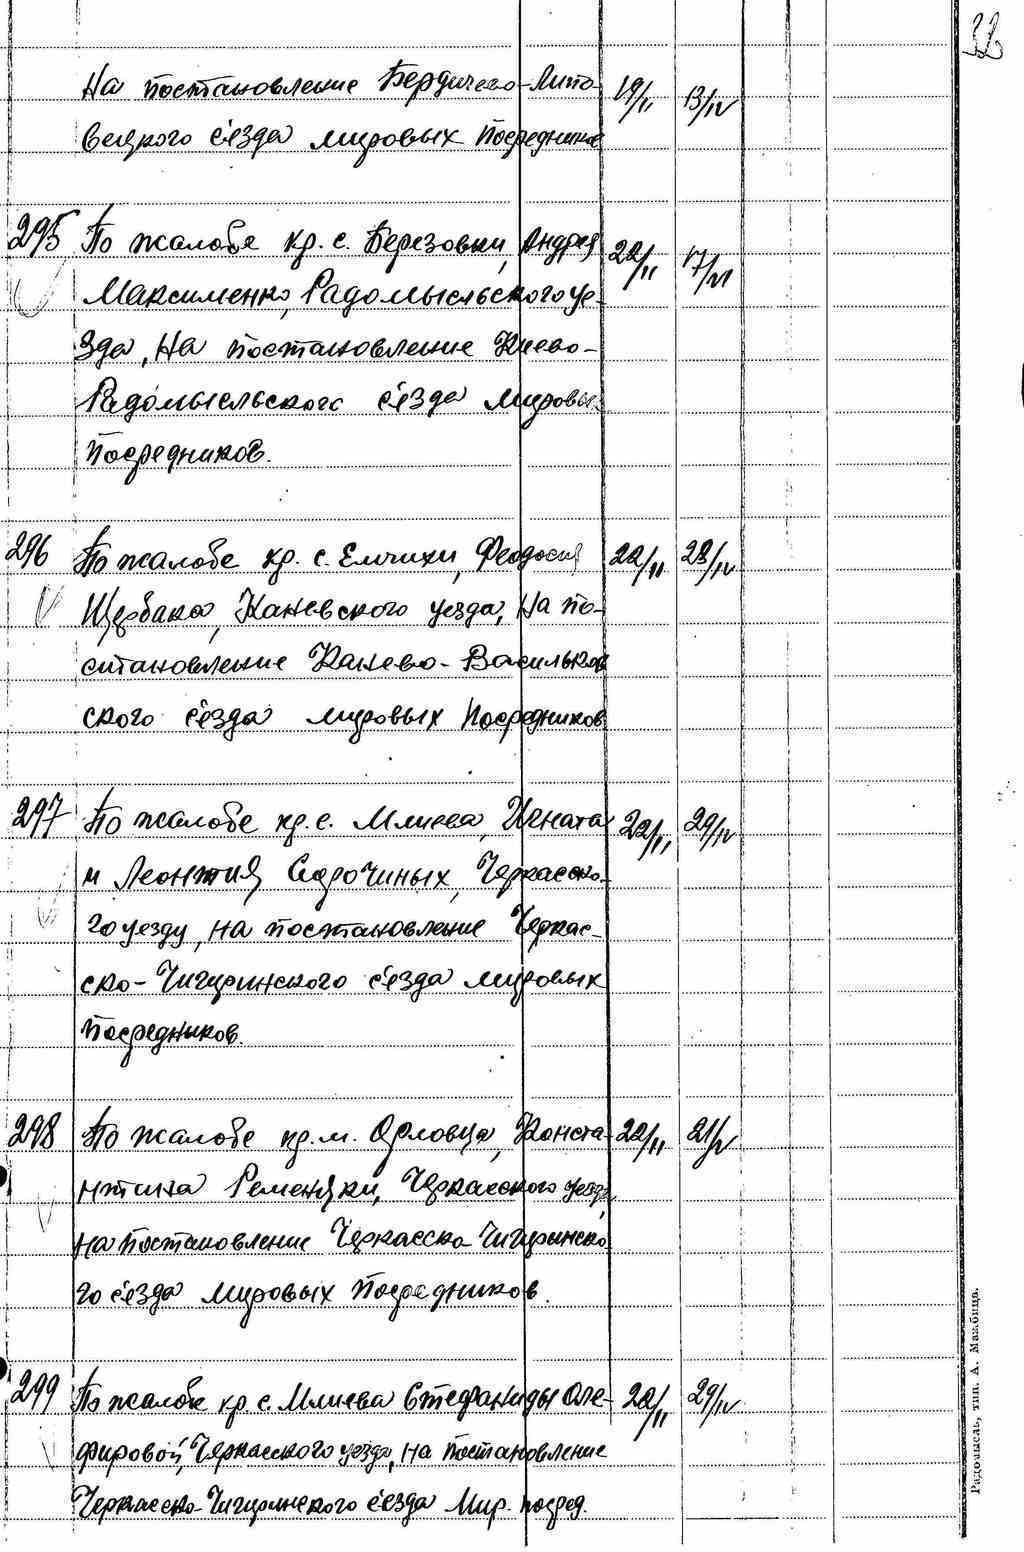 32
На постановление Бердичево-Липо- 19/II 13/IV
вецкого съезда мировых посредников
295 По жалобе кр. с. Березовки, Андрея 22/II 17/VI
Максименко, Радомысльского уе-
зда, на постановление Киево-
Радомысльского съезда мировых
посредников.
296 По жалобе кр. с. Емчихи, Феодосия 22/II 28/IV
Щербака, Каневского уезда, на по-
становление Канево-Васильков
ского съезда мировых посредников
297 По жалобе кр. с. Млиева, Игната 22/II 29/IV
и Леонтия Сорочиных, Черкасско-
го уезду, на постановление Черкас-
ско-Чигиринского съезда мировых
посредников.
298 По жалобе кр. м. Орловца, Конста- 22/II 21/V
нтина Ременяки, Черкасского уезда,
на постановление Черкасско Чигиринско
го съезда мировых посредников.
299 По жалобе кр. с. Млиева Стефаниды Оле- 22/II 29/IV
фировой, Черкасского уезда, на постановление
Черкасско-Чигиринского съезда Мир. посред.
Радомысль, тип. А. Мамбица.